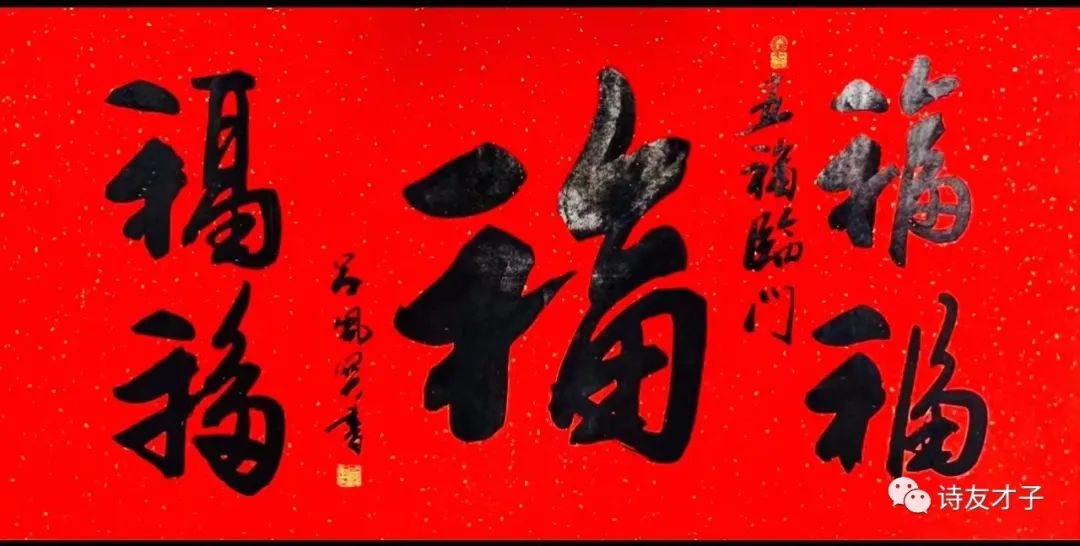 福
福
五福臨门
福
福
福
诗友才子